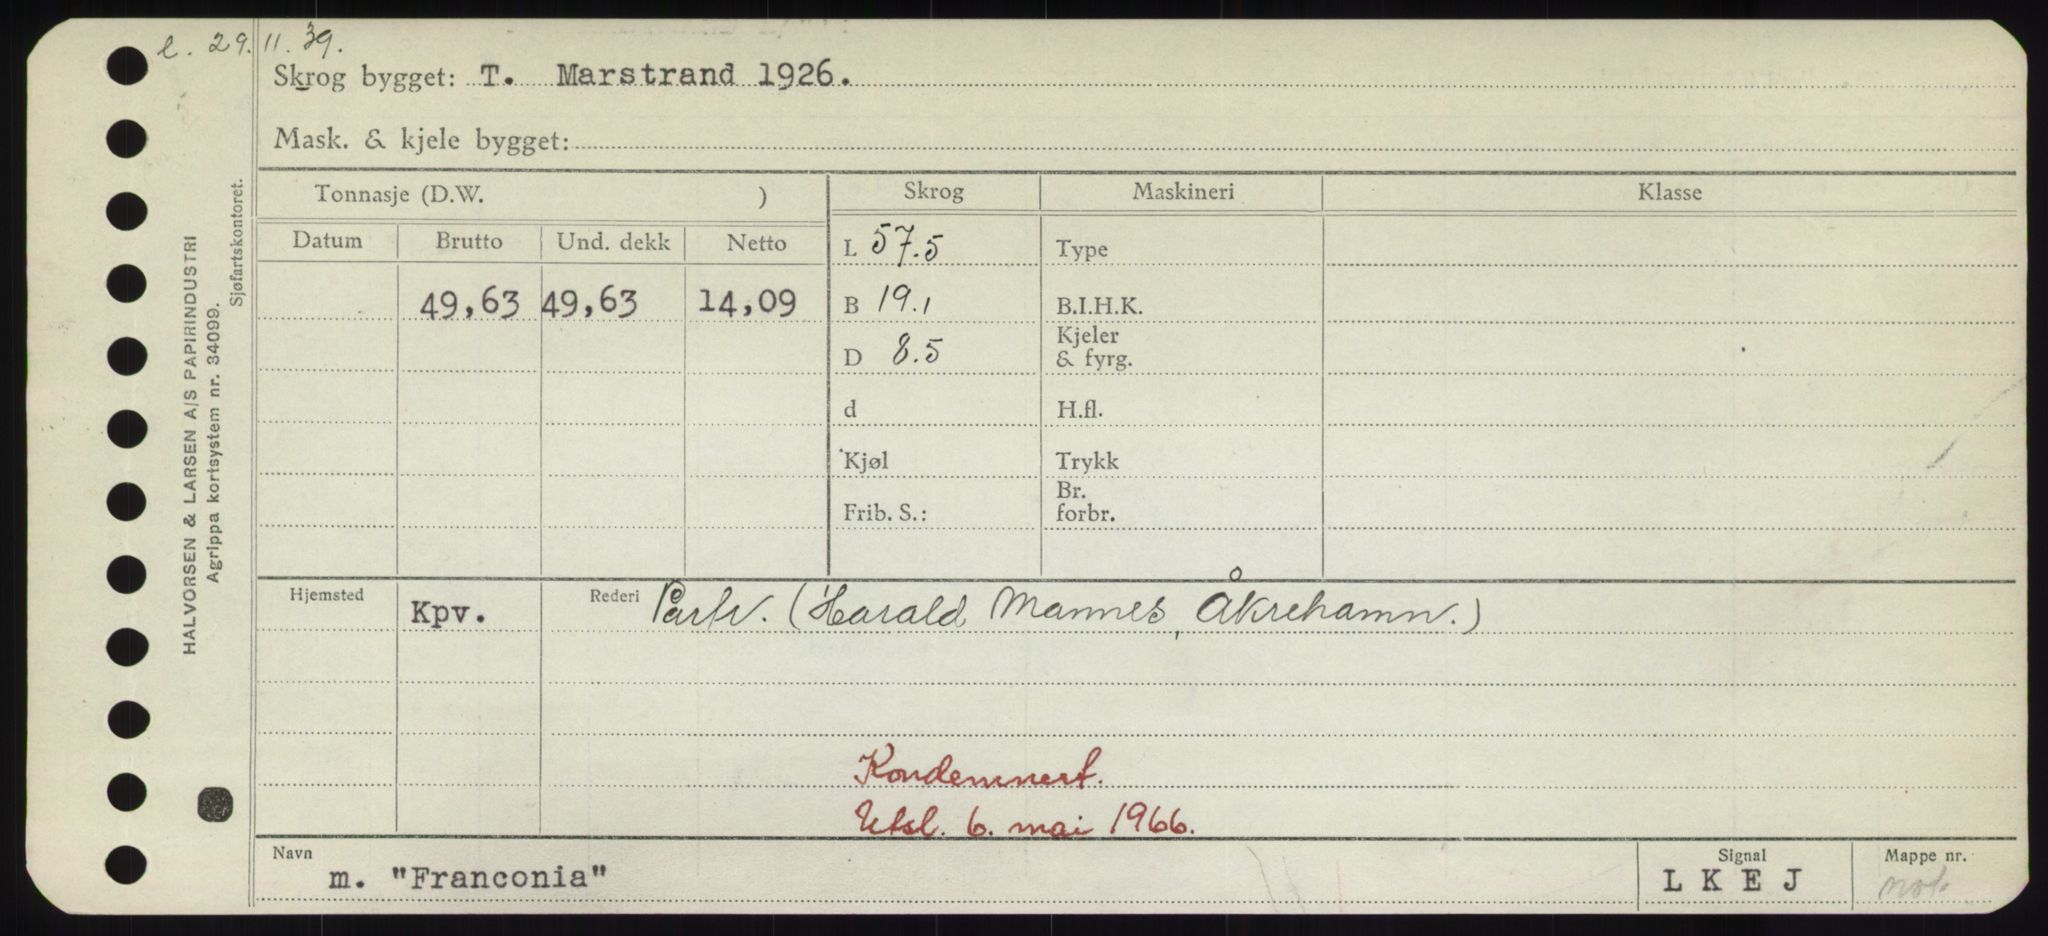 l. 29.11.39.
Skrog bygget: T. Marstrand 1926.
Mask. & kjele bygget:
HALVORSEN & LARSEN A/S PAPIRINDUSTRI
Agrippa kortsystem nr. 34099.
Sjøfartskontoret.
Tonnasje (D.W. ) Skrog Maskineri Klasse
Datum Brutto Und. dekk Netto L 57.5 Type
49,63 49,63 14,09 B 19.1 B.I.H.K.
D 8.5 Kjeler & fyrg.
d H.fl.
Kjøl Trykk
Frib. S.: Br. forbr.
Hjemsted Kpv. Rederi Partr. (Harald Mannes, Åkrehamn.)
Kondemnert.
Utsl. 6. mai 1966.
Navn Signal Mappe nr.
m. "Franconia" L K E J mot.